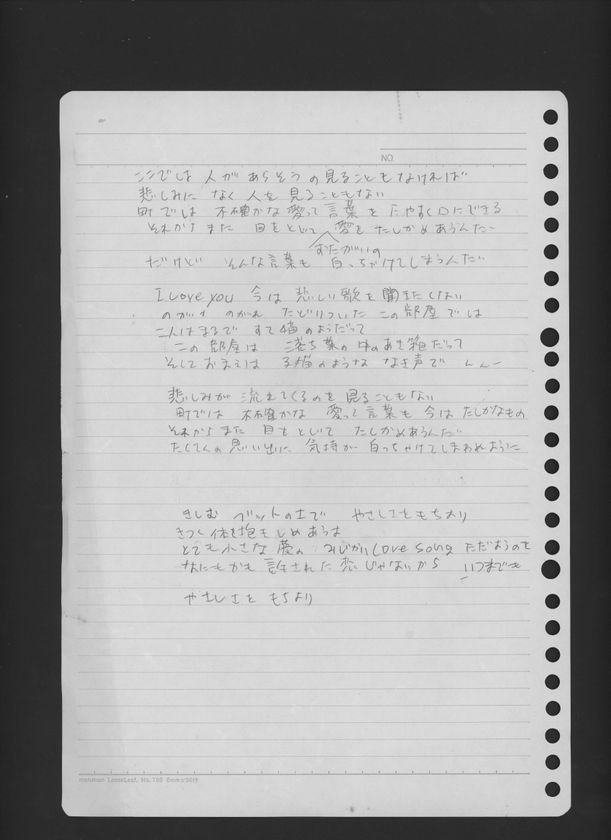 NO.
ここでは 人が あらそうの見ることもなければ
悲しみに なく 人を 見ることもない
町では 不確かな愛って言葉を たやすく口にできる
それからまた 目をとじて 愛を たしかめあうんだ
おたがいの
だけど そんな言葉も 白っちゃけてしまうんだ
I Love you 今は 悲しい歌を聞きたくない
のがれ のがれ たどりついた この部屋では
二人はまるで すて猫のようだって
この部屋は 落ち葉の中のあき箱だって
そしておまえは 子猫のような なき声で んんー
悲しみが 流れてくるのを 見ることもない
町では 不確かな 愛って言葉も 今は たしかなもの
それからまた 目をとじて たしかめあうんだ
たくさんの思い出に 気持が 白っちゃけてしまわぬように
きしむ ベットの上で やさしさをもちより
きつく体を抱きしめあうよ
とても小さな愛の みじかい Love song ただようのを
なにもかも 許された 恋じゃないから いつまでも
やさしさを もちより
maruman LooseLeaf, No.